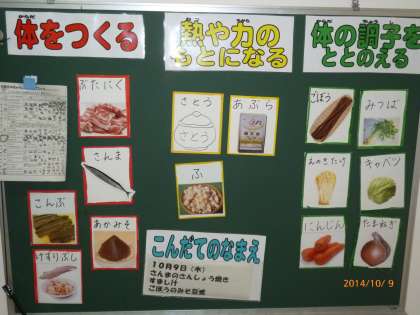 体をつくる
熱や力の
もとになる
体の調子を
ととのえる
ぶたにく
さんま
こんぶ
あかみそ
けずりぶし
さとう
さとう
あぶら
ふ
ごぼう
みつば
えのきたけ
キャベツ
にんじん
たまねぎ
こんだてのなまえ
10月9日(木)
さんまのさんしょう焼き
すまし汁
ごぼうのみそ豆煮
2014/10/ 9